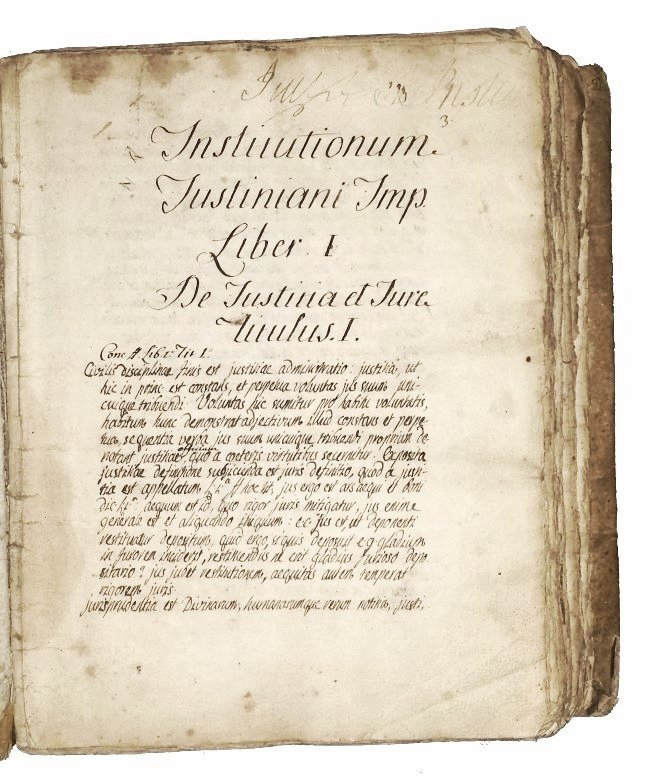 3.
Institutionum.
Justiniani Imp.
Liber. I
De Justitia et Jure.
Titulus. I.
Conc. ff Lib. 1. Tit 1.
Civilis disciplinae finis est justitiae administratio: justitia, ut
hic in princ est constans, et perpetua voluntas jus suum uni-
cuique tribuendi. Voluntas hic sumitur pro habitu voluntatis,
habitum hunc demonstrat adjectivum illud constans et perpe-
tua, sequentia verba jus suum unicuique tribuendi proprium de-
notant justitiae officium quo a ceteris virtutibus secernitur. Exposita
justitiae definitione subjicienda est juris definitio, quod a justi-
tia est appellatum, hoc tit, jus ergo est ars aequi et boni
aequum est id, quo rigor juris mitigatur, jus enim
generale est et aliquando iniquum: e.c. jus est ut deponenti
restituatur depositum, quid ergo si quis deposuit e g gladium
in furorem incidit, restituendus ne erit gladius furioso depo-
sitario? jus jubet restitutionem, aequitas autem temperat
rigorem juris
jurisprudentia est Divinarum, humanarumque rerum notitia, justi,